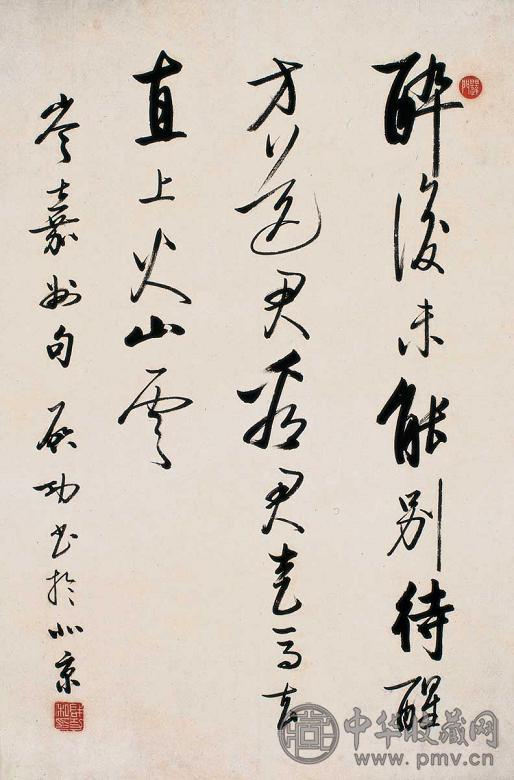 醉後未能別待醒
方送君看君走馬去
直上火山雲
岑嘉州句 启功書於北京
中华收藏网
www.pmv.cn